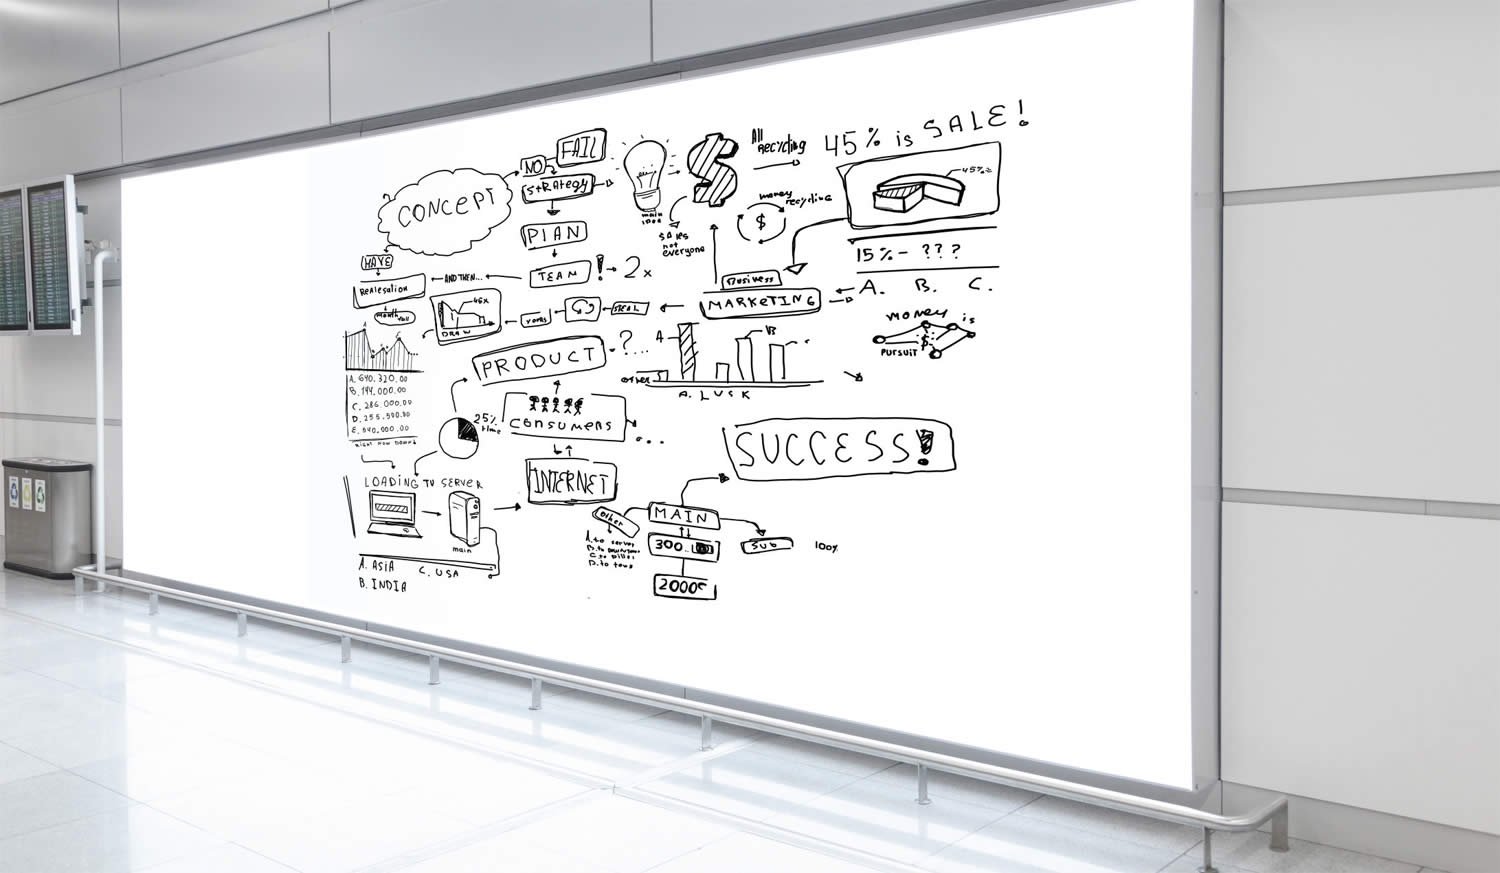 FAIL
NO
STRATEGY
CONCEPT
main
idea
$
All
Recycling
45% is SALE!
45%
money
recycling
$
SALES
not
everyone
PLAN
15% - ???
HAVE
TEAM
! 2x
AND THEN...
Realesation
Business
MARKETING
A. B. C.
46x
DRAW
money is
$
PURSUIT
PRODUCT
?...
A
B
other
A. LUSK
A. 640.320.00
B. 194.000.00
C. 286.000.00
D. 255.500.00
E. 540.000.00
25%
time
CONSUMERS
...
SUCCESS!
LOADING TO SERVER
INTERNET
main
other
MAIN
300..
SUB
100%
A. to server
A. ASIA
C. USA
B. INDIA